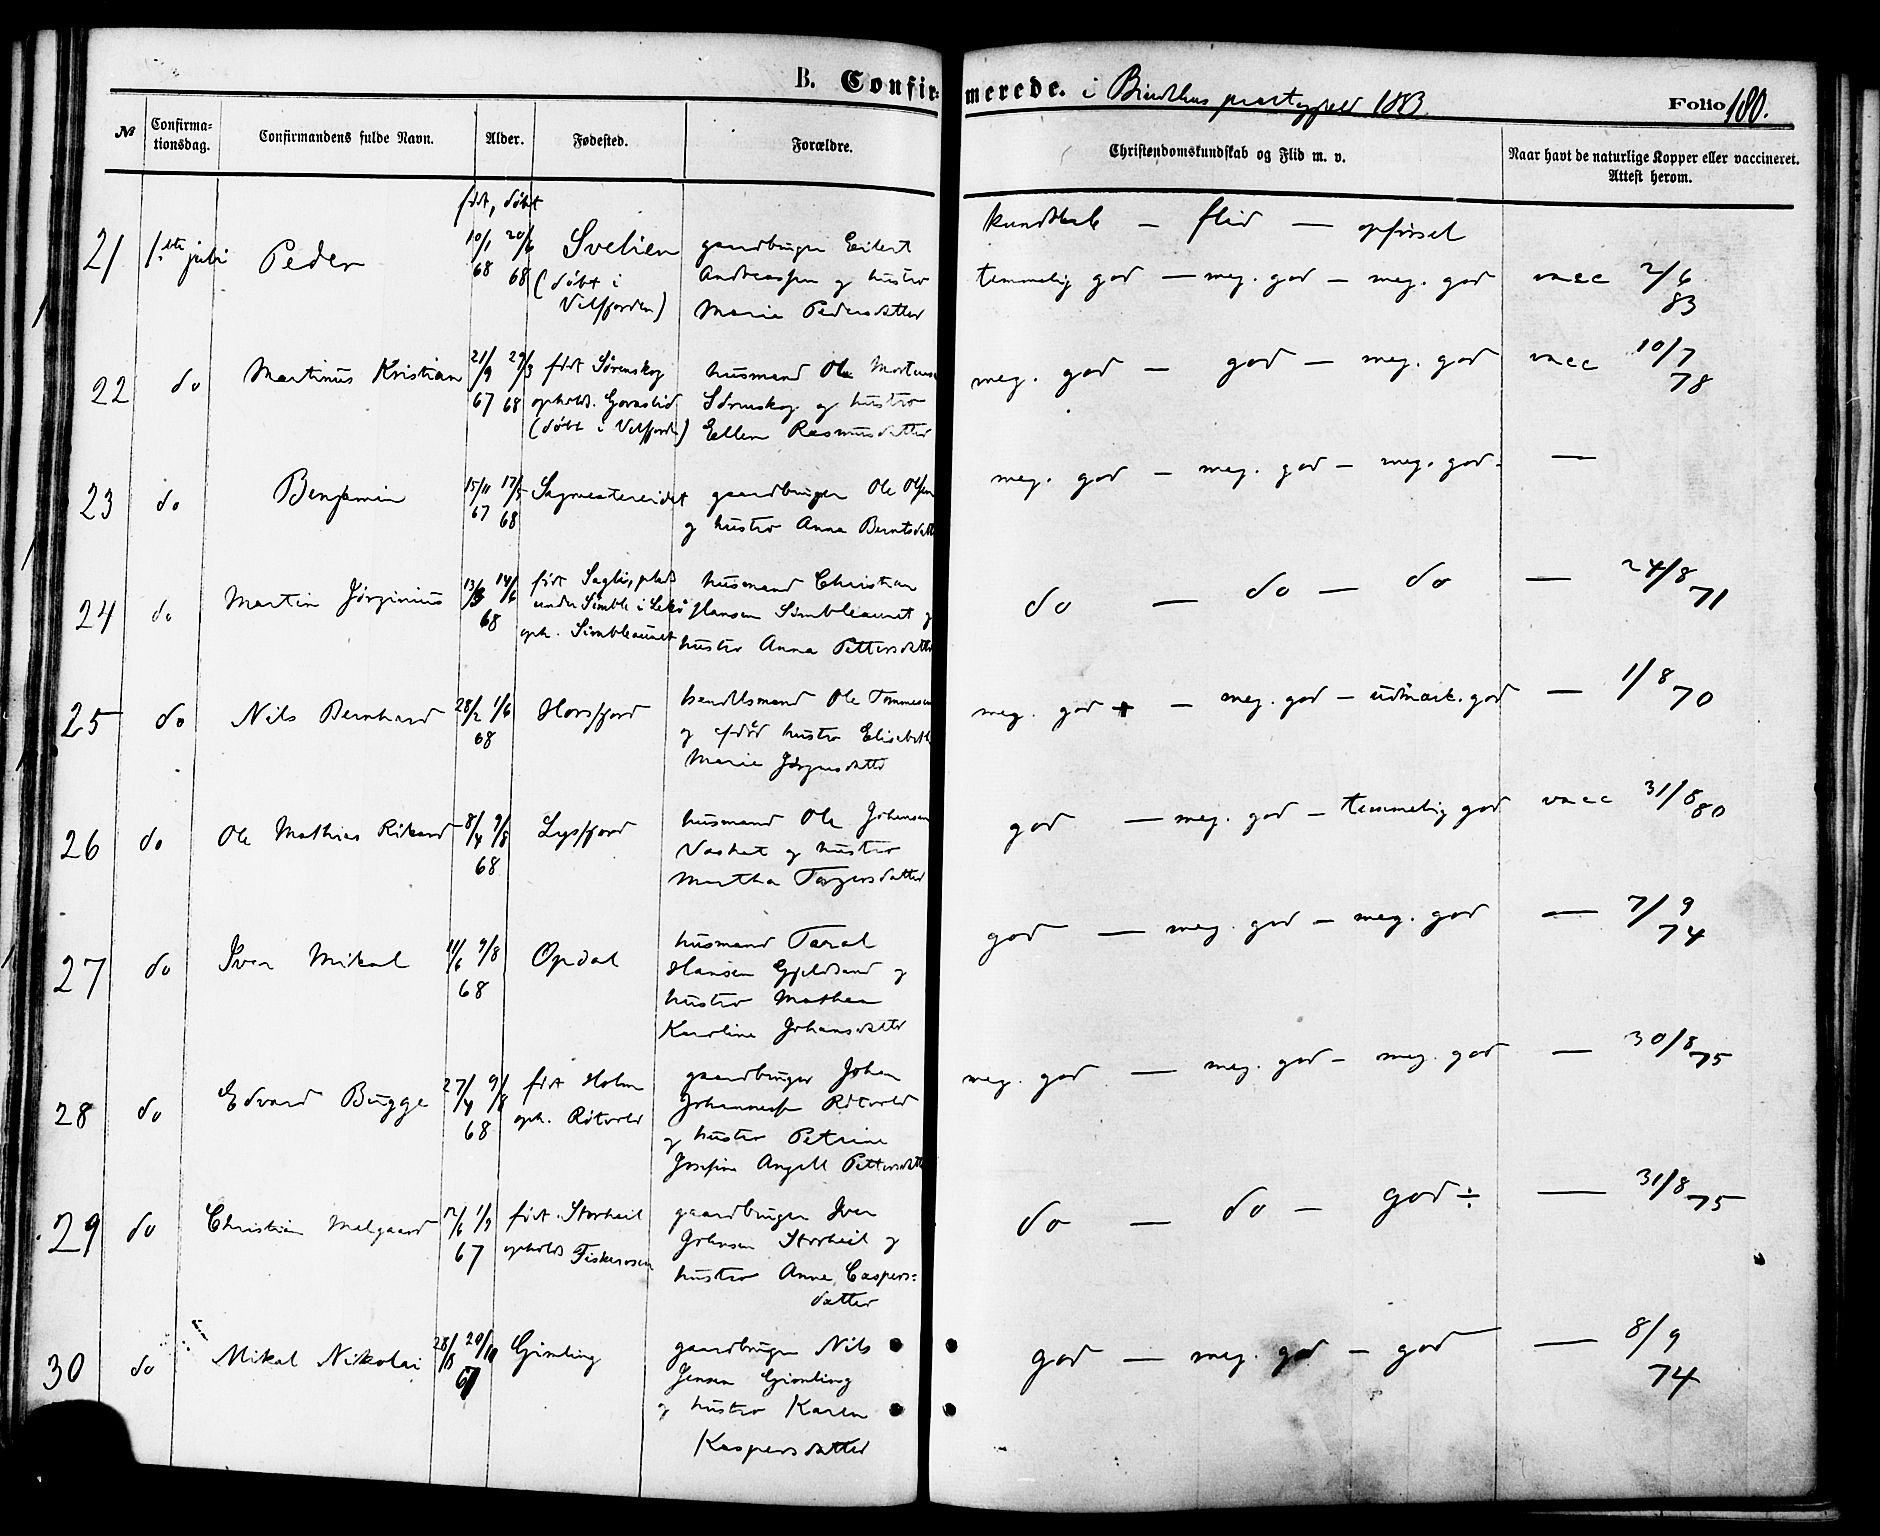 B. Confirmerede. i Bindalens præstegjeld 1883. Folio 180.
№ Confirmationsdag. Confirmandens fulde Navn. Alder. Fødested. Forældre. Christendomskundskab og Flid m. v. Naar havt de naturlige Kopper eller vaccineret. Attest herom.
født, døbt
kundskab — flid — opførsel
21 1ste juli Peder 10/1 68 20/6 68 Svelien
(døbt i
Velfjorden)
gaardbruger Eilert
Andreassen og hustro
Marie Pedersdatter
temmelig god — meg. god — meg. god vacc 2/6 83
22 do Martinus Kristian 21/9 67 29/3 68 født Sørenskog
ophold. Gaaslid
(døbt i Velfjorden)
husmand Ole Mortensen
Sørenskog og hustro
Ellen Rasmusdatter
meg. god — god — meg. god vacc 10/7 78
23 do Benjamin 15/11 67 17/5 68 Sagmestereidet
gaardbruger Ole Olsen
og hustro Anna Berntsdatter
meg. god — meg. god — meg. god. —
24 do Martin Jørginius 13/3 14/6 68 født Saglis, plads
under Simble i Lekø
oph. Simbleaunet
husmand Christian
Hansen Simbleaunet og
hustro Anna Pettersdatter
do — do — do — 24/8 71
25 do Nils Bernhard 28/2 1/6 68 Horsfjord
handelsmand Ole Tommesen
og afdød hustro Elisabeth
Marie Jørgensdatter
meg. god + — meg. god — udmærk. god — 1/8 70
26 do Ole Mathias Rikard 8/4 9/8 68 Lysfjord
husmand Ole Johansen
Vasket og hustro
Martha Torgersdatter
god — meg. god — temmelig god vacc 31/8 80
27 do Iver Mikal 11/6 9/8 68 Opdal
husmand Taral
Hansen Gjeldsand og
hustro Mathea
Karoline Johansdatter
god — meg. god — meg. god — 7/9 74
28 do Edvard Bugge 27/4 9/8 68 født Holm
oph. Røtvold
gaardbruger Johan
Johannesen Røtvold
og hustro Petrine
Josefine Angell Pettersdatter
meg. god — meg. god — meg. god — 30/8 75
29 do Christian Melgaard 12/6 1/9 67 født Storheil
ophold Fiskerosen
gaardbruger Iver
Johnsen Storheil og
hustro Anne Caspers=
datter
do — do — god ÷ — 31/8 75
30 do Mikal Nikolai 28/8 20/10 67 Gimling
gaardbruger Nils
Jensen Gimling
og hustro Karen
Kaspersdatter
god — meg. god — god — 8/9 74